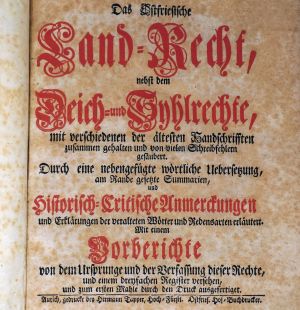 Das Ostfriesische
Land-Recht,
nebst dem
Deich- und Syhlrechte,
mit verschiedenen der ältesten Handschrifften
zusammen gehalten und von vielen Schreibfehlern
gesäubert.
Durch eine nebengefügte wörtliche Uebersetzung,
am Rande gesetzte Summarien,
und
Historisch-Critische Anmerckungen
und Erklärungen der veralteten Wörter und Redensarten erläutert.
Mit einem
Vorberichte
von dem Ursprunge und der Verfassung dieser Rechte,
und einem dreyfachen Register versehen,
und zum ersten Mahle durch den Druck ausgefertiget.
Aurich, gedruckt bey Hermann Tapper, Hoch-Fürstl. Ostfries. Hof-Buchdrucker.